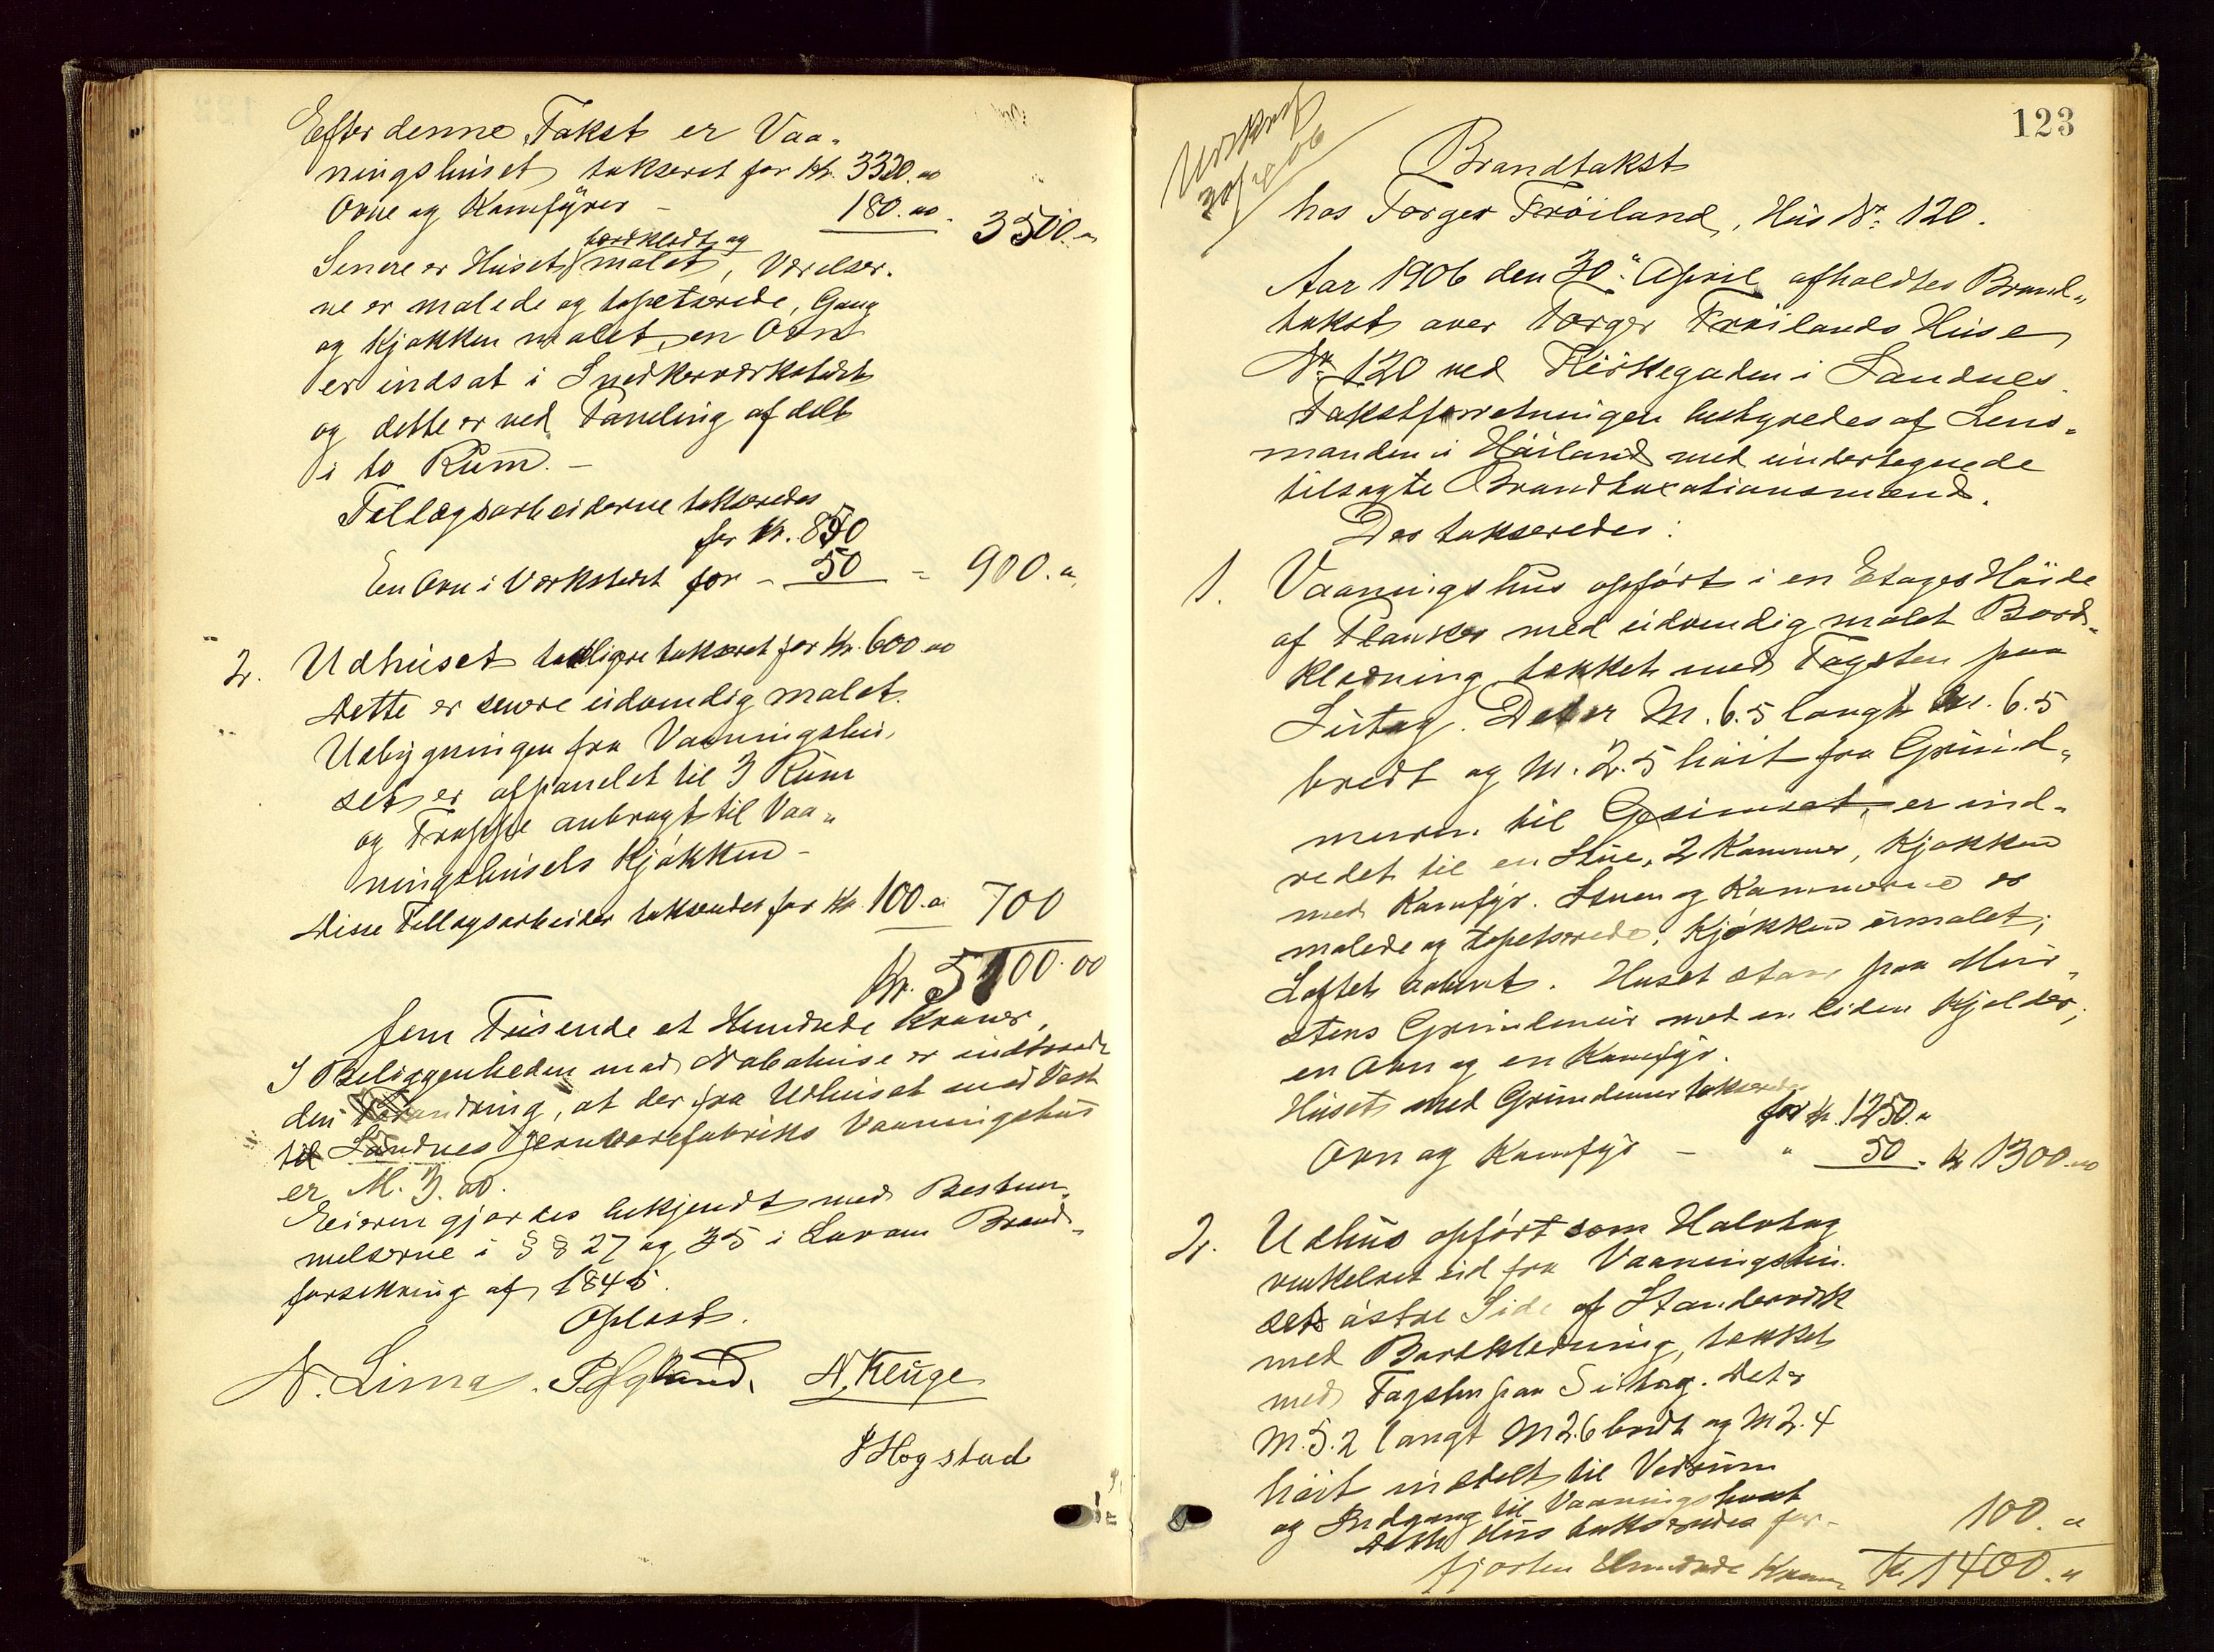 Efter denne Takst er Vaa-
ningshuset takseret for Kr. 3320.00
Ovne og Kamfyrer - 180.00. 3500.00
bordklædt og
Senere er Huset malet, Værelser-
ne er malede og tapetserede, Gang
og Kjøkken malet, en Ovn
er indsat i Snedkerværkstedet
og dette er ved Paneling af delt
i to Rum. -
Tillægsarbeiderne takseredes
for Kr. 850
En Ovn i Værkstedet for - 50 - 900.00
2. Udhuset tidligere takseret for Kr. 600.00
Dette er senere udvendig malet.
Udbygningen fra Vaaningshu-
set er afpanelet til 3 Rum
og Trappe anbragt til Vaa-
ningshusets Kjøkken -
Disse Tillægsarbeider takseredes for Kr. 100.00 700
Kr. 5100.00
fem Tusende et Hundrede Kroner,
I Beliggenheden mod Nabohuse er indtraadt
den Forandring, at der fra Udhuset mod Vest
til Sandnes Jernvarefabriks Vaaningshus
er M. 3.00.
Eieren gjordes bekjendt med Bestem-
melserne i §§ 27 og 35 i Lov om Brand-
forsikring af 1845.
Oplæst.
N. Lima. N. Keuge
P Hogstad
123
Udskrift
30/4 06
Brandtakst
hos Torger Frøiland, Hus No. 120.
Aar 1906 den 30. April afholdtes Brand-
takst over Torger Frøilands Huse
Nr. 120 ved Kirkegaden i Sandnes.
Takstforretningen bestyredes af Lens-
manden i Høiland med undertegnede
tilsagte Brandtaxationsmænd.
Der takseredes:
1. Vaaningshus opført i en Etages Høide
af Planker med udvendig malet Bord-
klædning, tækket med Tagsten paa
Sutag. Det er M. 6.5 langt M. 6.5
bredt og M. 2.5 høit fra Grund-
muren til Gesimset, er ind-
redet til en Stue, 2 Kammer, Kjøkken
med Kamfyr. Stuen og Kammerne er
malede og tapetserede, Kjøkken umalet;
Loftet aabent. Huset staar paa Mur-
stens Grundmur med en liden Kjelder;
en Ovn og en Kamfyr.
Huset med Grundmur takseredes
for Kr. 1250.00
Ovn og Kamfyr - " 50 - Kr 1300.00
2. Udhus opført som Halvtag
vinkelret ud fra Vaaningshu-
sets østre Side af Standerværk
med Bordklædning, tækket
med Tagsten paa Sutag. Det er
M. 5.2 langt M 2.6 bredt og M 2.4
høit inddelt til Vedrum
og Indgang til Vaaningshuset
Dette Hus takseredes for - 100.00
fjorten Hundrede Kroner Kr. 1400.00